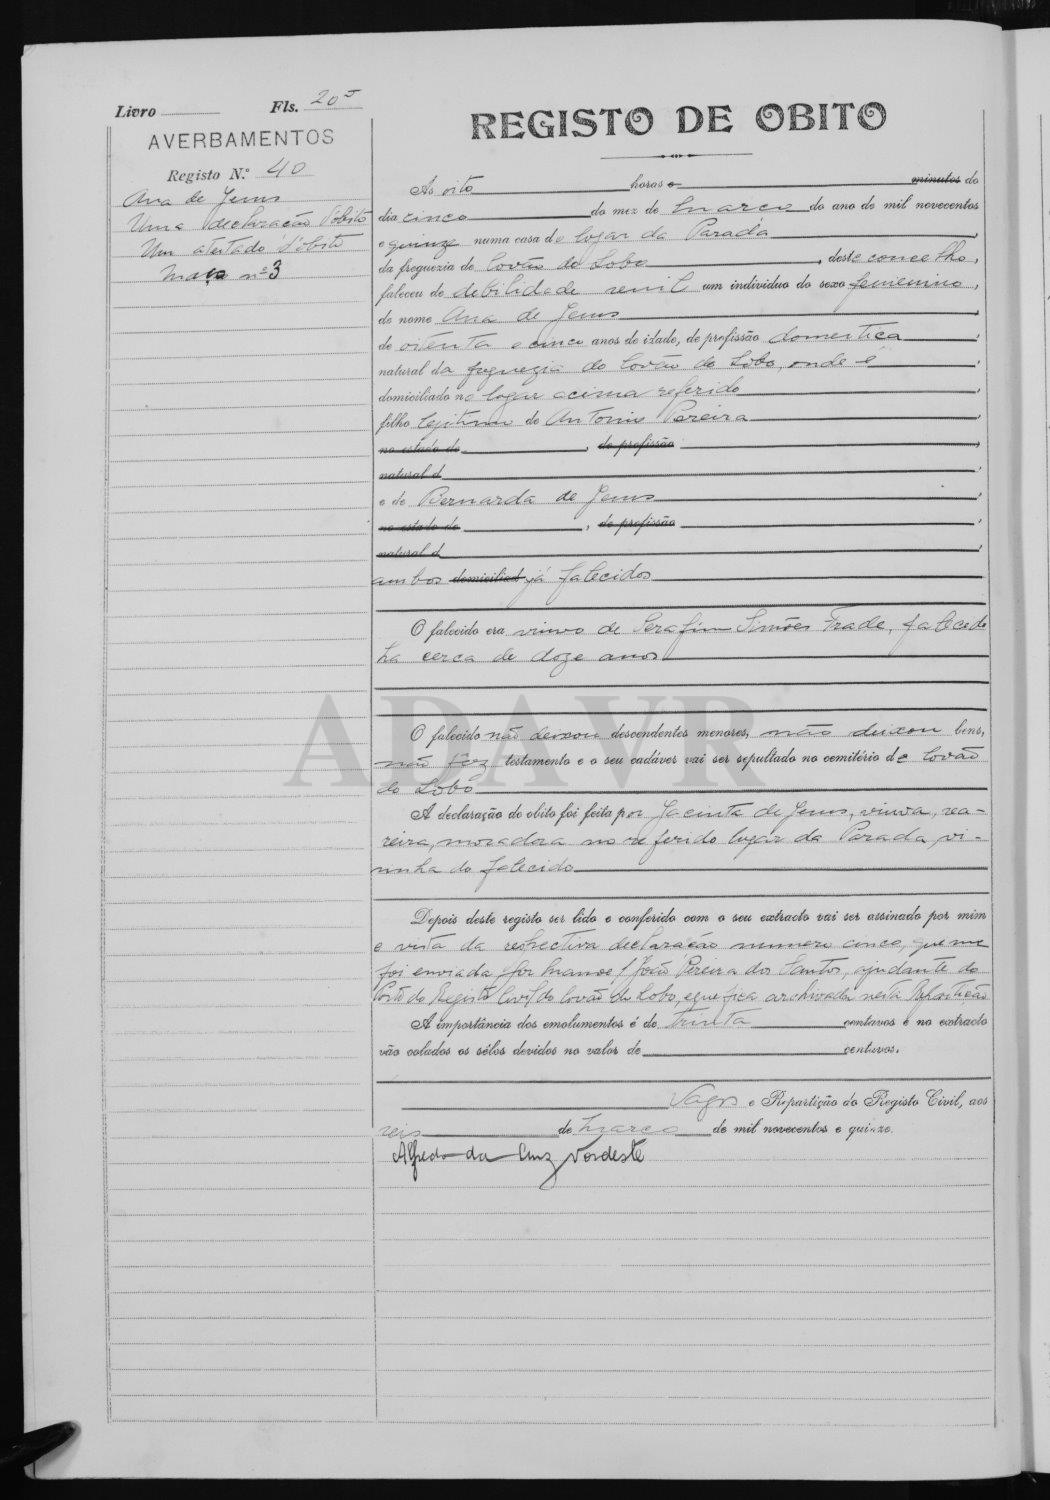 Livro Fls. 20
AVERBAMENTOS
Registo N.º 40
Ana de Jesus
Uma declaração d'obito
Um atestado d'óbito
Maço nº 3
REGISTO DE OBITO
Ás oito horas e minutos do
dia cinco do mez de Março do ano de mil novecentos
e quinze numa casa do logar da Parada,
da freguezia de Covão do Lobo, deste concelho,
faleceu de debilidade senil um individuo do sexo femenino,
de nome Ana de Jesus
de oitenta e cinco anos de idade, de profissão domestica,
natural da freguezia do Covão do Lobo, onde é
domiciliado no logar acima referido,
filho legitimo de Antonio Pereira,
no estado de, de profissão,
natural d,
e de Bernarda de Jesus,
no estado de, de profissão,
natural d,
ambos domiciliad já falecidos
O falecido era viuvo de Serafim Simões Frade, falecido
ha cerca de doze anos
O falecido não deixou descendentes menores, não deixou bens,
não fêz testamento e o seu cadáver vai ser sepultado no cemitério de Covão
do Lobo
A declaração do obito foi feita por Jacinta de Jesus, viuva, sea-
reira, moradora no referido lugar da Parada, vi-
sinha do falecido
Depois deste registo ser lido e conferido com o seu extracto vai ser assinado por mim
e vista da respectiva declaração numero cinco, que me
foi enviada por João Pereira dos Santos, ajudante do
Posto do Registo Civil do Covão do Lobo, e que fica archivada nesta Repartição
A importância dos emolumentos é de trinta centavos e no extracto
vão colados os sêlos devidos no valor de centavos.
Vagos e Repartição do Registo Civil, aos
seis de Março de mil novecentos e quinze.
Alfredo da Cruz Nordeste
ADAVR